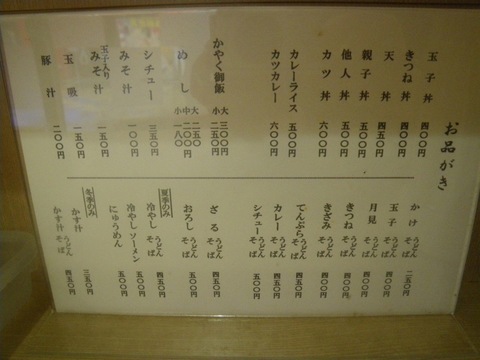 お品がき
玉子丼 四〇〇円
きつね丼 四〇〇円
天丼 四五〇円
親子丼 五〇〇円
他人丼 五〇〇円
カツ丼 六〇〇円
カレーライス 五〇〇円
カツカレー 六〇〇円
かやく御飯 大 三〇〇円
小 二五〇円
めし 大 二五〇
中 二〇〇円
小 一八〇
シチュー 三五〇円
みそ汁 一〇〇円
玉子入りみそ汁 一五〇円
玉吸 一五〇円
豚汁 二〇〇円
かけ うどん そば 二五〇円
玉子 うどん そば
月見 うどん そば
きつね うどん そば
きざみ うどん そば 四〇〇円
てんぷら うどん そば 四五〇円
カレー うどん そば
シチュー うどん そば 五〇〇円
ざる うどん そば 四五〇円
おろし うどん そば 五〇〇円
夏季のみ
冷やし うどん そば 四五〇円
冷やしソーメン 五〇〇円
にゅうめん
冬季のみ
かす汁 三五〇円
かす汁 うどん そば 四五〇円